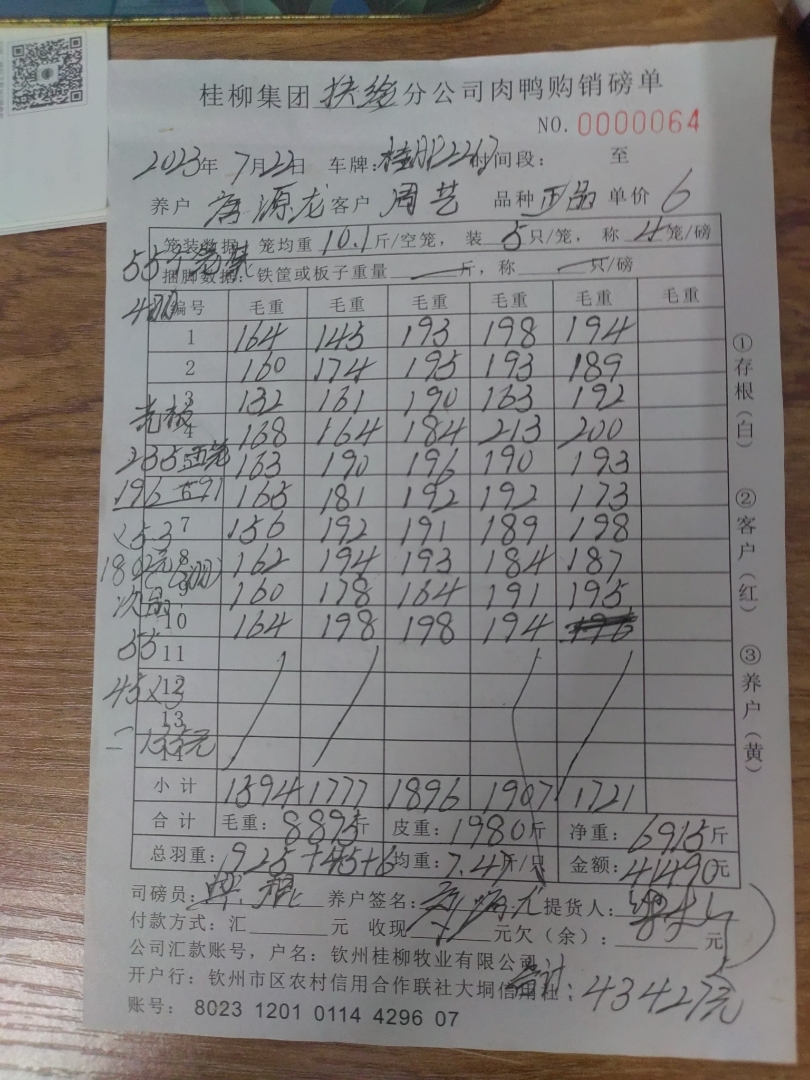 桂柳集团扶绥分公司肉鸭购销磅单
NO. 0000064
2023年 7月22日 车牌: 时间段: 至
养户 源龙 客户 周艺 品种 正品 单价 6
笼装数据: 笼均重 10.1 斤/空笼, 装 5 只/笼, 称 4 笼/磅
捆脚数据: 铁筐或板子重量 — 斤, 称 — 只/磅
编号 毛重 毛重 毛重 毛重 毛重 毛重
1 164 145 193 198 194
2 160 174 195 193 189
3 132 161 190 163 192
4 168 164 184 213 200
163 190 196 190 193
165 181 192 192 173
7 156 192 191 189 198
8 162 194 193 184 187
9 160 178 164 191 195
10 164 198 198 194
11
12
13
14
小计 1594 1777 1896 1907 1721
合计 毛重: 8895斤 皮重: 1980斤 净重: 6915斤
总羽重: 925+45+6 均重: 7.47斤/只 金额: 41490元
司磅员: 养户签名: 提货人:
付款方式: 汇 元 收现 元 欠(余): 元
公司汇款账号, 户名: 钦州桂柳牧业有限公司
开户行: 钦州市区农村信用合作联社大垌信用社
合计: 43427元
账号: 8023 1201 0114 4296 07
①存根(白)
②客户(红)
③养户(黄)
235
196
×53
次品:
55
45×3
= 135元